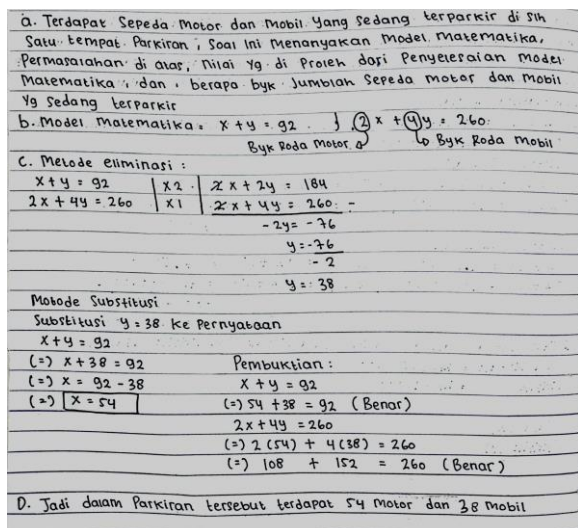 a. Terdapat Sepeda Motor dan Mobil Yang Sedang terparkir di Slh
Satu tempat Parkiran, Soal Ini Menanyakan Model Matematika,
Permasalahan di atas, Nilai Yg di Proleh dari Penyelesaian Model
Matematika, dan, berapa byk Jumblah Sepeda motor dan mobil
Yg Sedang terparkir
b. Model Matematika = x + y = 92 } 2x + 4y = 260
Byk Roda Motor Byk Roda Mobil
C. Metode eliminasi :
x + y = 92 | x2 | 2x + 2y = 184
2x + 4y = 260 | x1 | 2x + 4y = 260 -
-2y = -76
y = -76
-2
y = 38
Motode Substitusi
Substitusi y = 38 ke Pernyataan
x + y = 92
(=) x + 38 = 92
(=) x = 92 - 38
(=) x = 54
Pembuktian :
x + y = 92
(=) 54 + 38 = 92 (Benar)
2x + 4y = 260
(=) 2 (54) + 4 (38) = 260
(=) 108 + 152 = 260 (Benar)
D. Jadi dalam Parkiran tersebut terdapat 54 Motor dan 38 Mobil